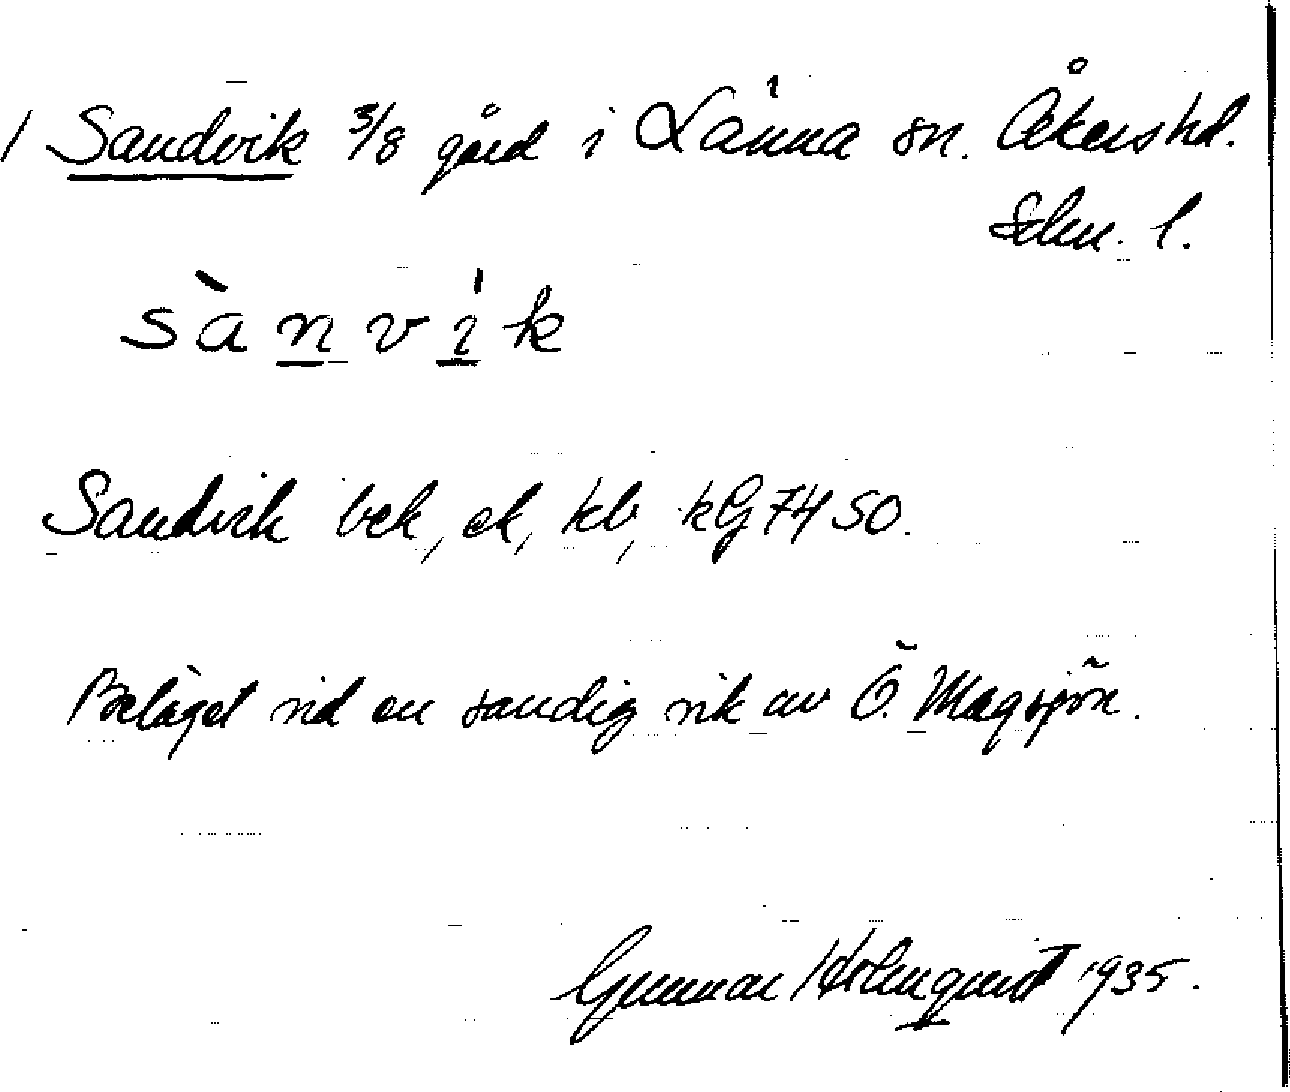 1 Sandvik 3/8 gård i Länna sn. Åkers hd.
Sdm. l.
sànvík
Sandvik bek, ek, kb, kG 7450.
Beläget vid en sandig vik av Ö. Magsjön.
Gunnar Holmquist 1935.